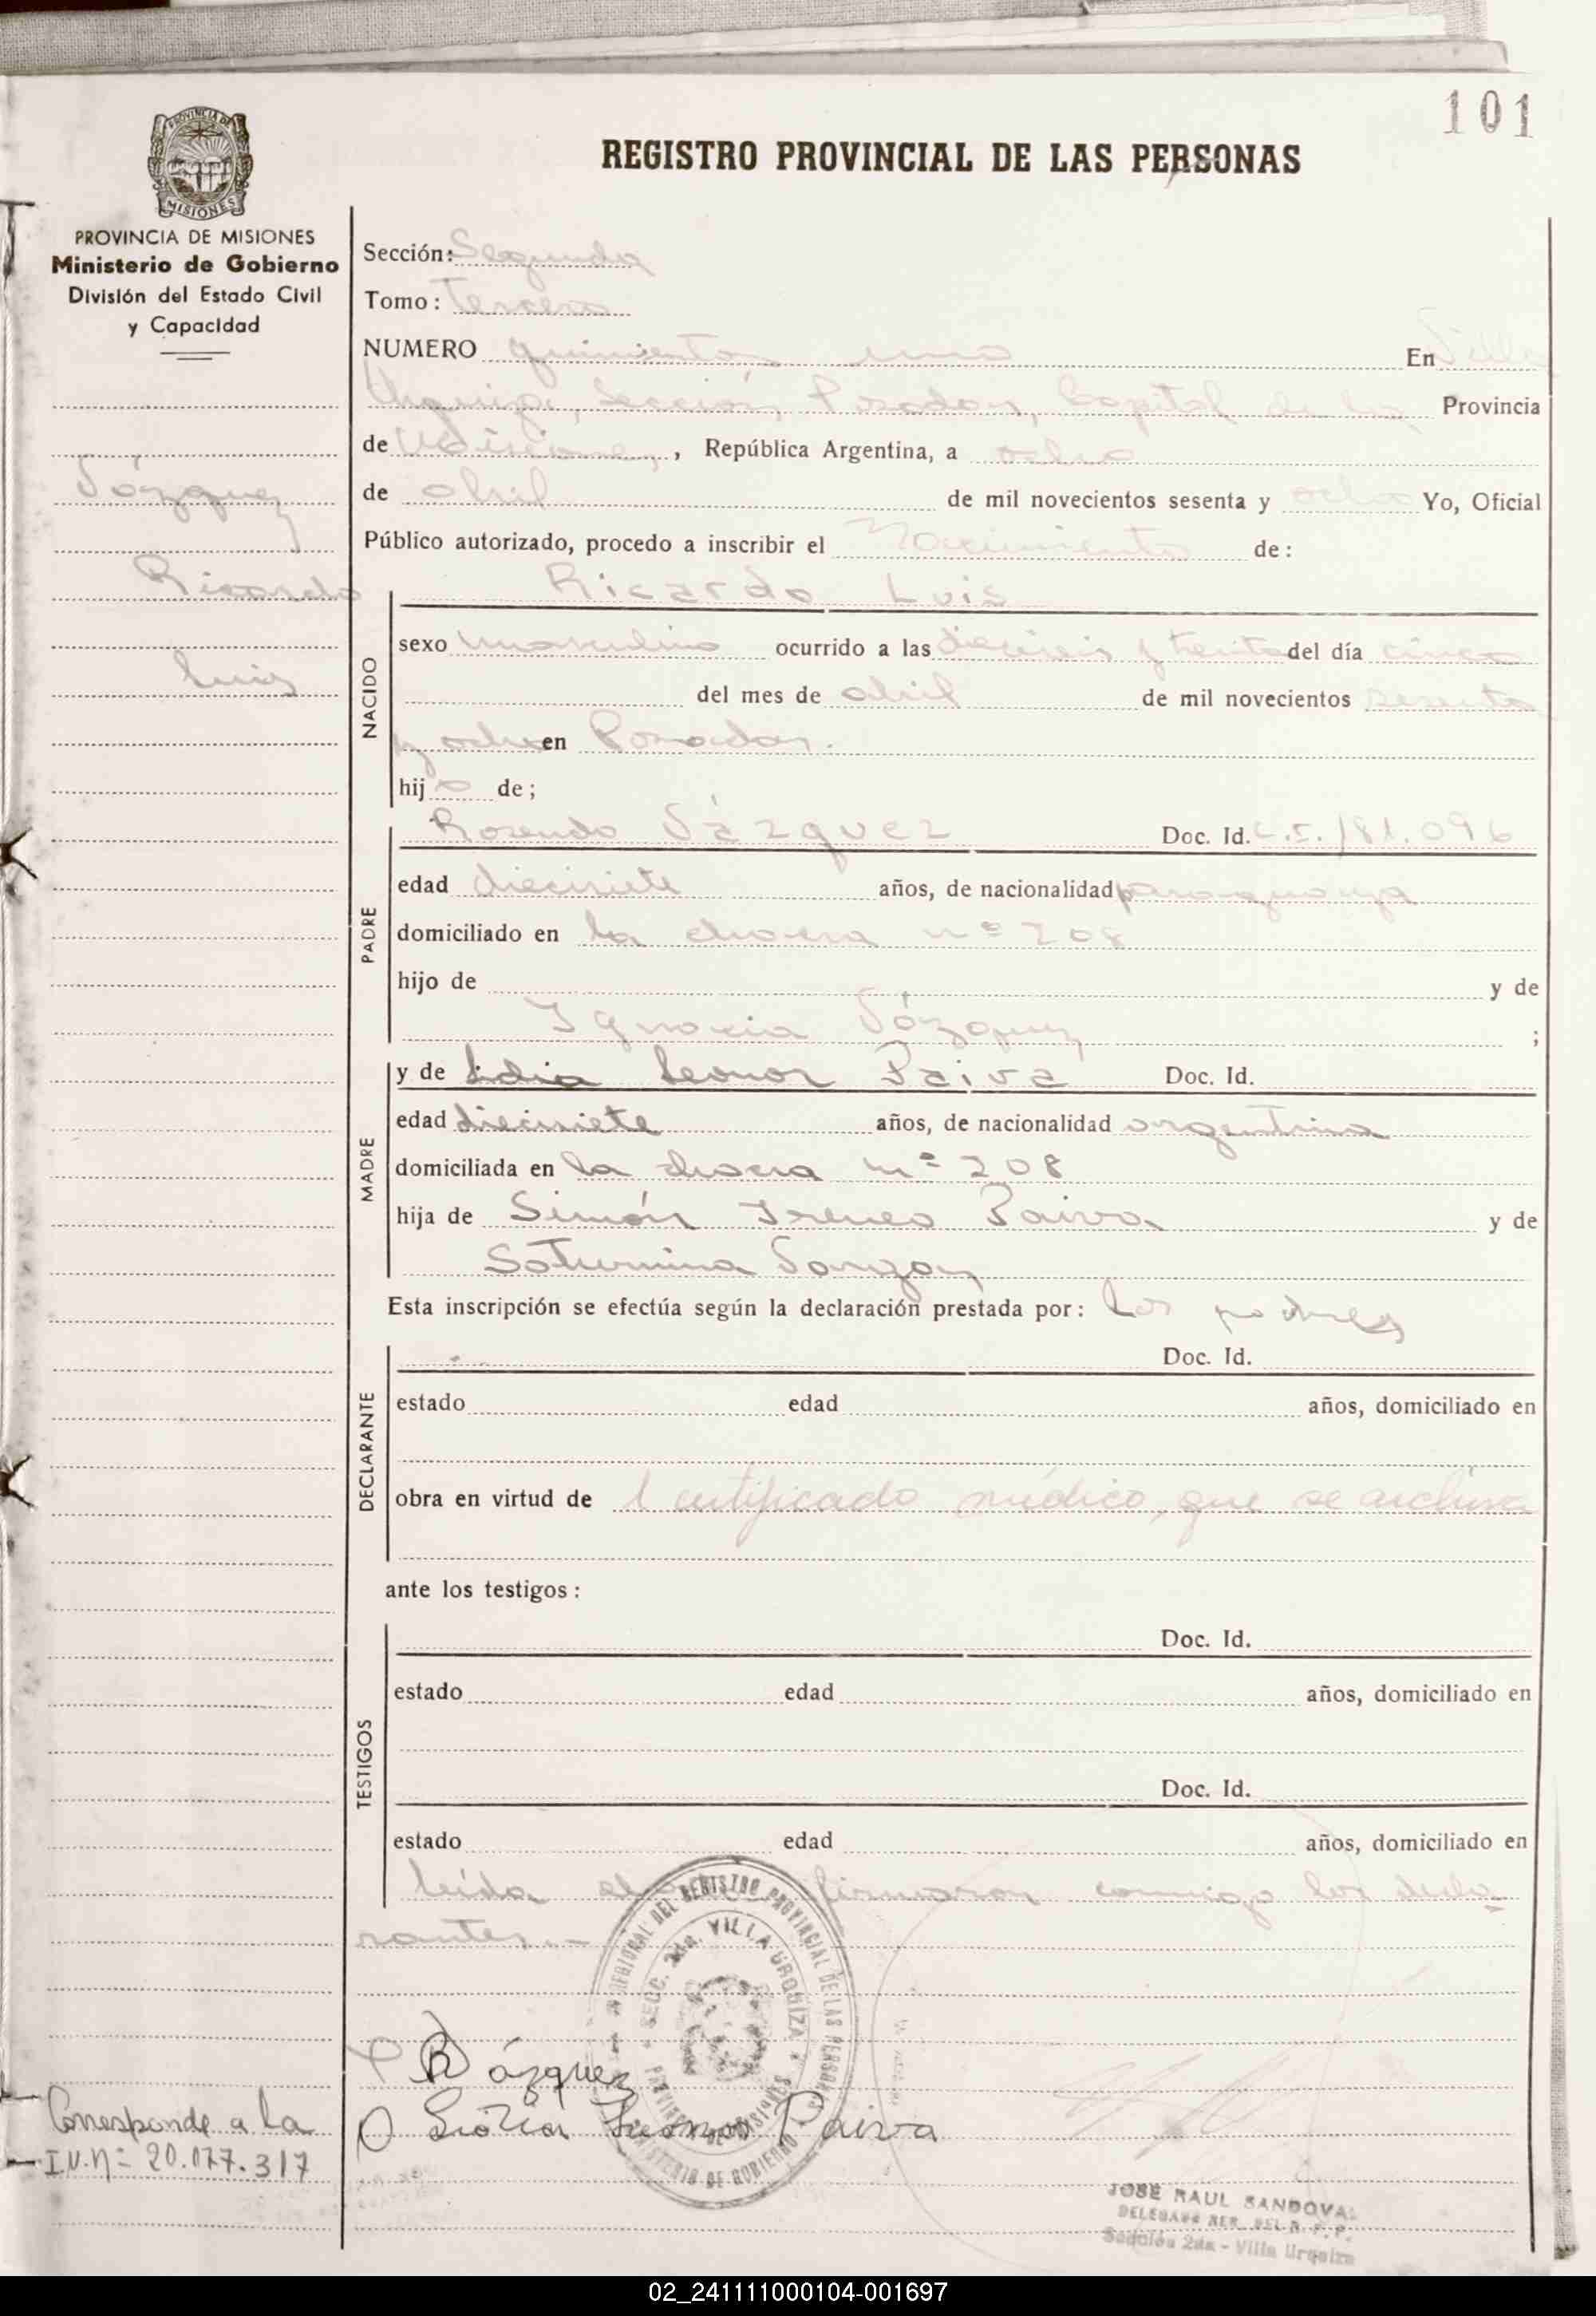 101
PROVINCIA DE MISIONES
REGISTRO PROVINCIAL DE LAS PERSONAS
PROVINCIA DE MISIONES
Ministerio de Gobierno
División del Estado Civil
y Capacidad
Vázquez
Ricardo
Luis
Sección: Segunda
Tomo: Tercero
NUMERO quinientos uno En Villa
Urquiza, Sección, Posadas, Capital de la Provincia
de Misiones, , República Argentina, a ocho
de abril de mil novecientos sesenta y ocho Yo, Oficial
Público autorizado, procedo a inscribir el Nacimiento de:
NACIDO
Ricardo Luis
sexo masculino ocurrido a las dieciseis y treinta del día cinco
del mes de abril de mil novecientos sesenta
y ocho en Posadas.
hijo de;
PADRE
Rosendo Vázquez Doc. Id. C.I. 181.096
edad diecisiete años, de nacionalidad paraguaya
domiciliado en la chacra nº 208
hijo de y de
Ignacia Vázquez ;
MADRE
y de Lidia Leonor Paiva Doc. Id.
edad diecisiete años, de nacionalidad argentina
domiciliada en la chacra nº 208
hija de Simón Ireneo Paiva y de
Saturnina
Esta inscripción se efectúa según la declaración prestada por: los padres
DECLARANTE
Doc. Id.
estado edad años, domiciliado en
obra en virtud de 1 certificado médico, que se archiva
ante los testigos:
TESTIGOS
Doc. Id.
estado edad años, domiciliado en
Doc. Id.
estado edad años, domiciliado en
leída el firmaron conmigo los decla-
rantes.-
REGIONAL DEL REGISTRO PROVINCIAL DE LAS PERSONAS
SECC. 2da. VILLA URQUIZA
PROVINCIA DE MISIONES
MINISTERIO DE GOBIERNO
R Vázquez
Lidia Leonor Paiva
Corresponde a la
I.N.nº 20.077.317
JOSE RAUL SANDOVAL
DELEGADO REG. DEL R. P. P.
Sección 2da - Villa Urquiza
02_241111000104-001697